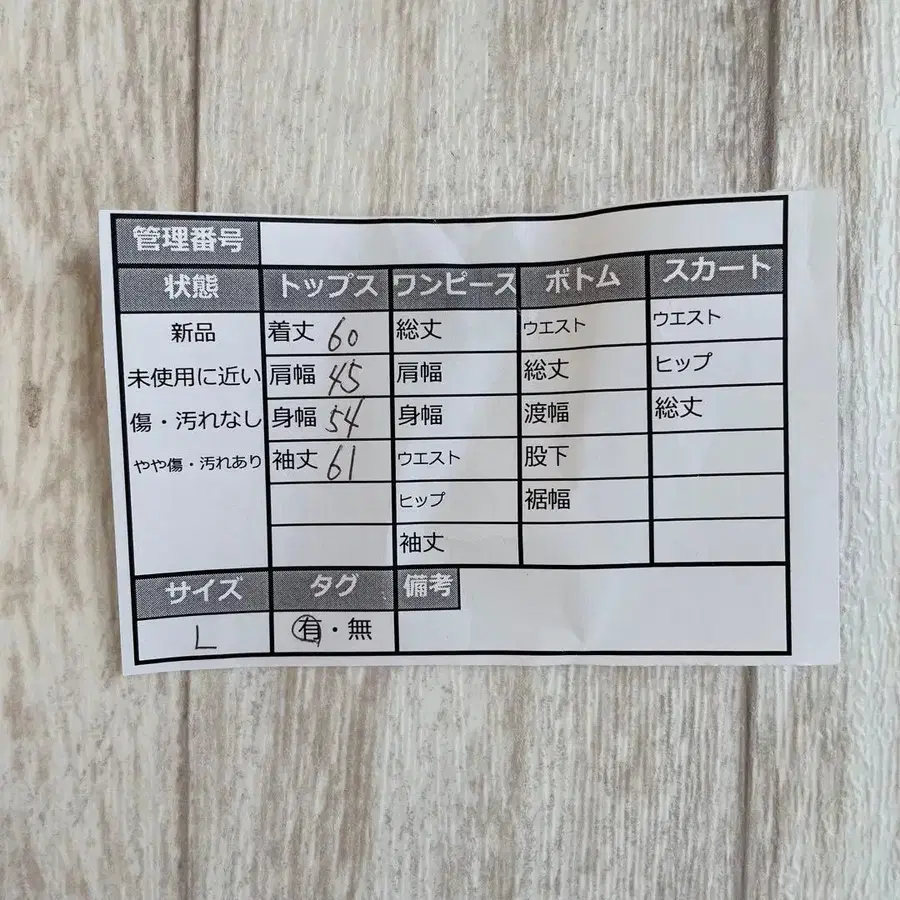 管理番号
状態 トップス ワンピース ボトム スカート
新品 着丈 60 総丈 ウエスト ウエスト
未使用に近い 肩幅 45 肩幅 総丈 ヒップ
傷・汚れなし 身幅 54 身幅 渡幅 総丈
やや傷・汚れあり 袖丈 61 ウエスト 股下
ヒップ 裾幅
袖丈
サイズ タグ 備考
L 有・無